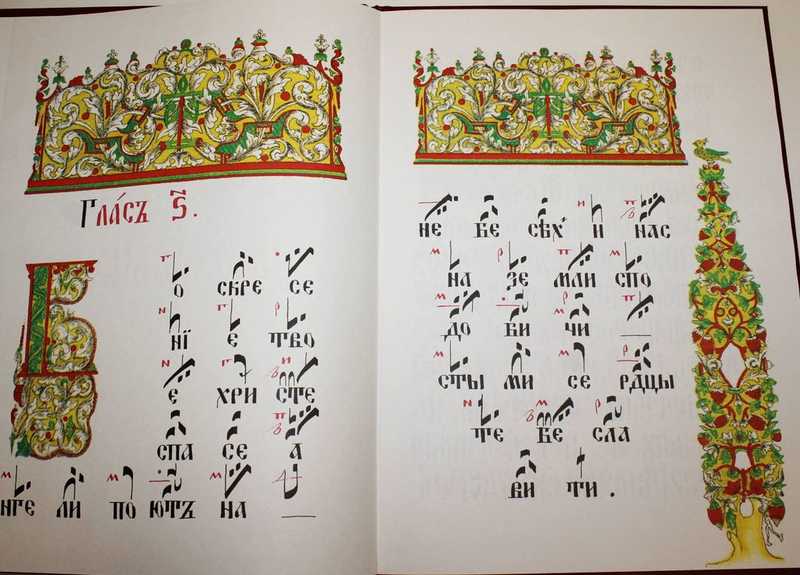 Гла́съ ѕ҃.
В о скре се
нїе тво
е хри сте
спа се а
нге ли по ютъ на
не бе сѣх и нас
на зе мли спо
до би чи
сты ми се рдцы
те бе сла
ви ти.